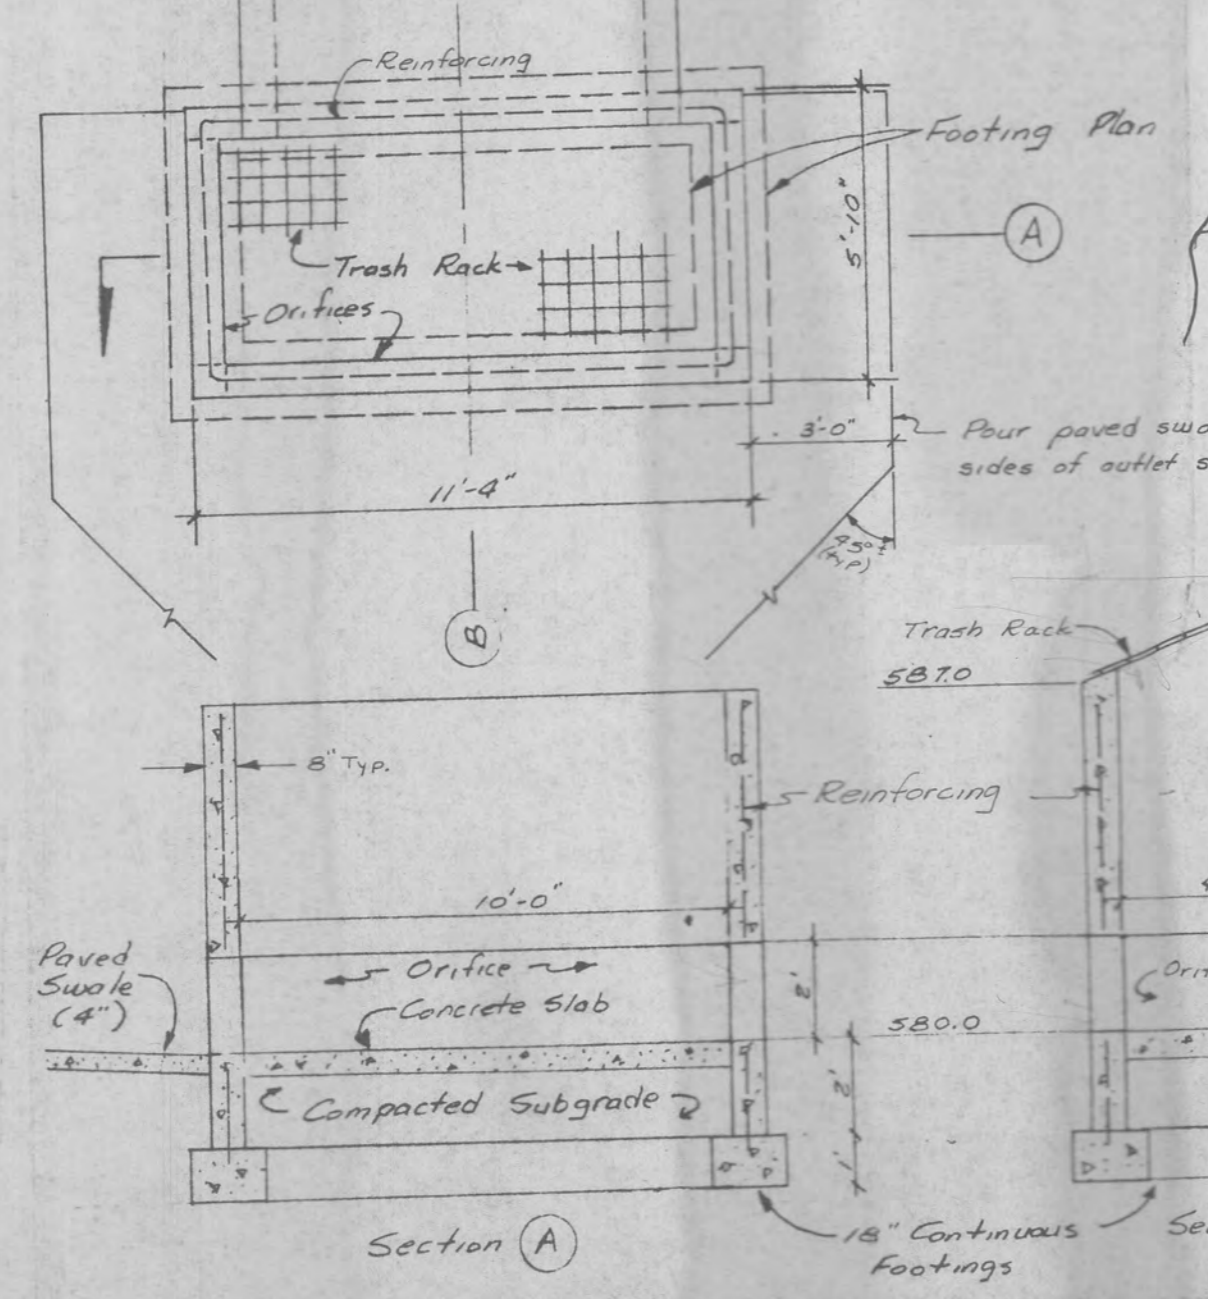 Reinforcing
Footing Plan
5'-10"
A
Trash Rack
Orifices
3'-0"
Pour paved
sides of outlet
11'-4"
45°±
(typ)
B
Trash Rack
587.0
8" Typ.
Reinforcing
10'-0"
Paved
Swale
(4")
Orifice
Concrete Slab
2'
580.0
Compacted Subgrade
2'
1'
Section A
18" Continuous
Footings